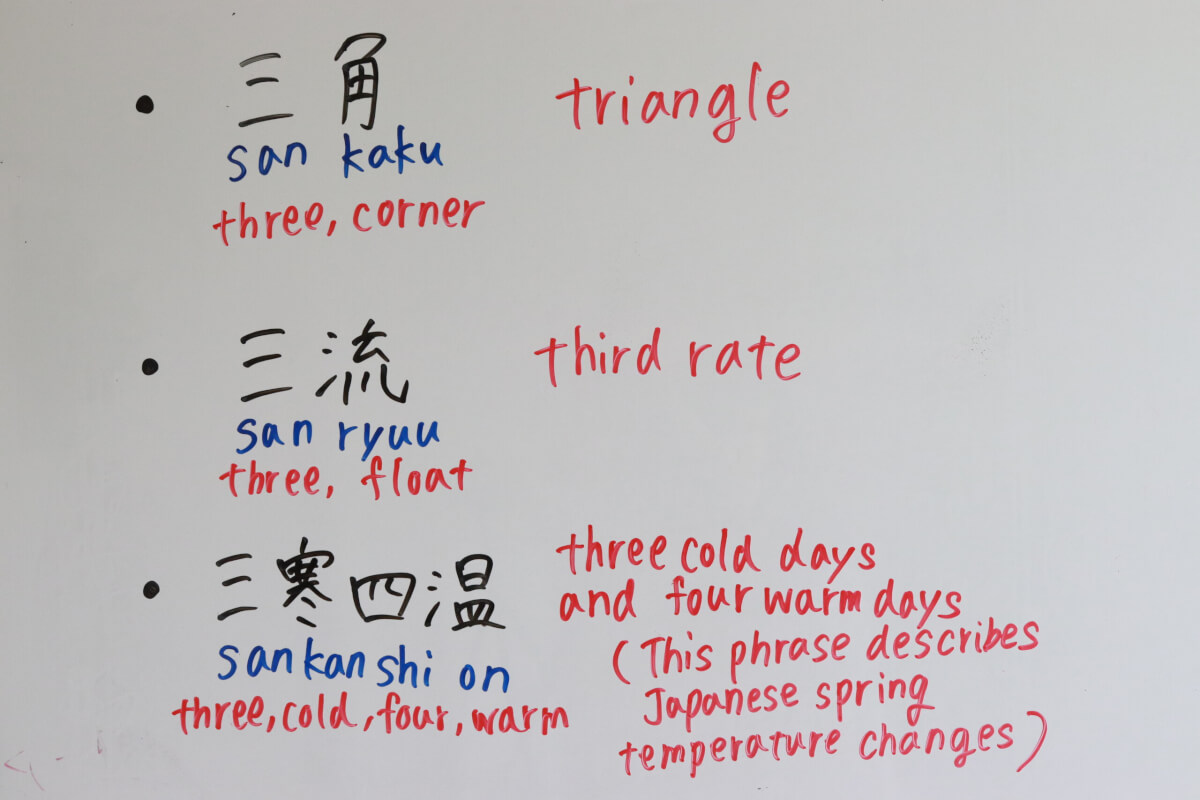 • 三角 triangle
san kaku
three, corner
• 三流 third rate
san ryuu
three, float
• 三寒四温
san kan shi on
three, cold, four, warm
three cold days
and four warm days
(This phrase describes
Japanese spring
temperature changes)